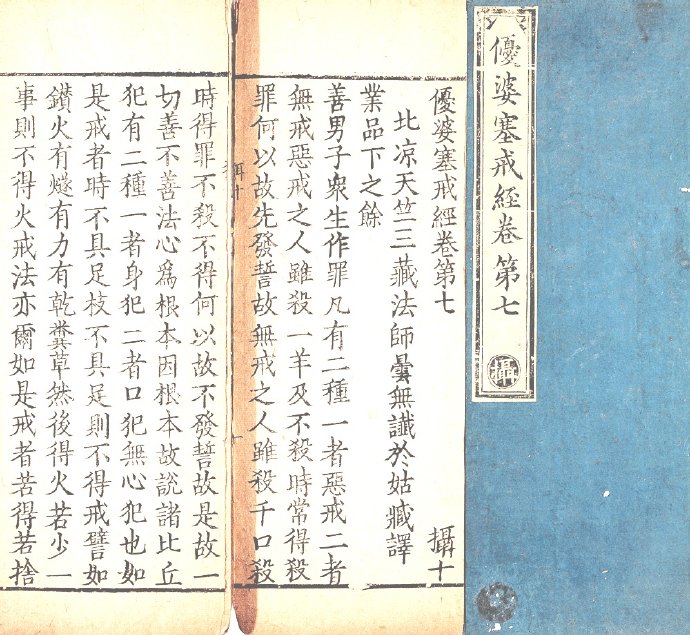 優婆塞戒経卷第七
優婆塞戒經卷第七
攝十
北凉天竺三藏法師曇無讖於姑臧譯
業品下之餘
善男子衆生作罪凡有二種一者惡戒二者
無戒惡戒之人雖殺一羊及不殺時常得殺
罪何以故先發誓故無戒之人雖殺千口殺
時得罪不殺不得何以故不發誓故是故一
切善不善法心爲根本因根本故説諸比丘
犯有二種一者身犯二者口犯無心犯也如
是戒者時不具足枝不具足則不得戒譬如
鑚火有燧有力有乾糞草然後得火若少一
事則不得火戒法亦爾如是戒者若得若捨